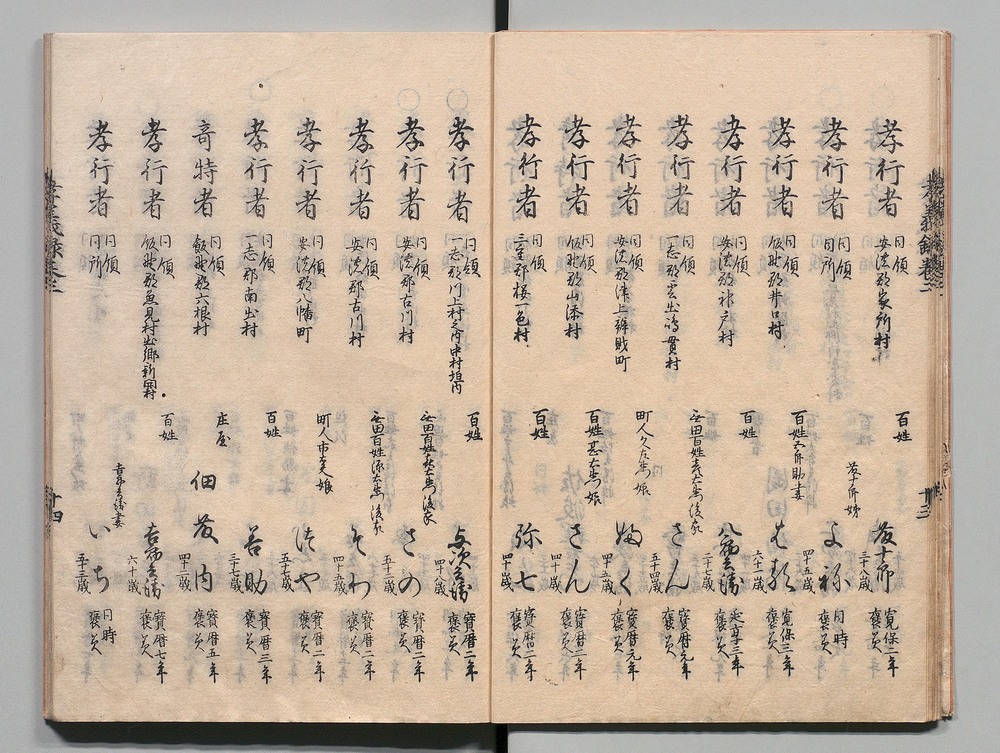 孝義録巻三
十三
孝行者 同領安濃郡家所村 百姓 藤十郎 三十八歳 寛保二年褒美
孝行者 同領同所 藤十郎姉 よね 四十五歳 同時褒美
孝行者 同領飯野郡井口村 百姓 助妻 六十一歳 寛保三年褒美
孝行者 同領安濃郡神戸村 百姓 八兵衛 二十六歳 延享三年褒美
孝行者 同領一志郡雲出嶋貫村 無田百姓 後家 さん 五十四歳 寶暦元年褒美
孝行者 同領安濃郡津上弁財町 町人久左衛門娘 ふく 四十八歳 寶暦元年褒美
孝行者 同領飯野郡山添村 百姓甚左衛門娘 さん 四十二歳 寶暦二年褒美
孝行者 同領三重郡桜一色村 百姓 弥七 四十歳 寶暦二年褒美
孝行者 同領一志郡川上村之内中村垣内 百姓 与次兵衛 四十八歳 寶暦二年褒美
孝行者 同領安濃郡古川村 無田百姓 後家 さの 四十歳 寶暦二年褒美
孝行者 同領安濃郡古川村 無田百姓 後家 そわ 四十五歳 寶暦二年褒美
孝行者 同領安濃郡八幡町 町人市左衛門娘 つや 五十六歳 寶暦二年褒美
孝行者 同領一志郡南出村 百姓 善助 三十七歳 寶暦三年褒美
奇特者 同領飯野郡六根村 庄屋 佃藤内 四十二歳 寶暦五年褒美
孝行者 同領飯野郡魚見村出郷新開村 百姓 吉郎兵衛 六十歳 寶暦七年褒美
孝行者 同領同所 吉郎兵衛妻 いち 五十三歳 同時褒美
孝義録巻三
十四